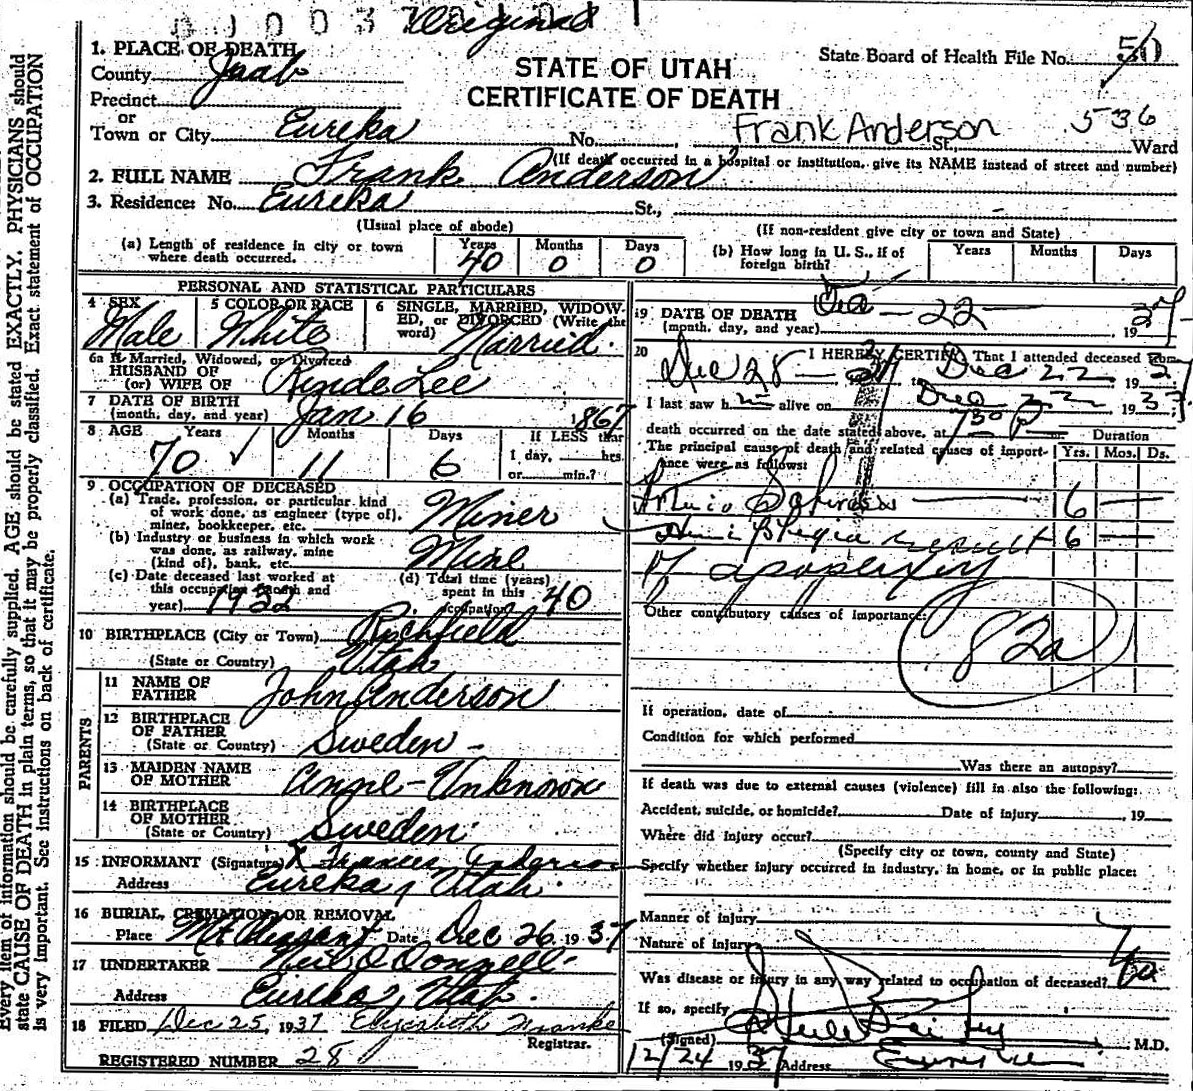 Original
1. PLACE OF DEATH
County Juab
State Board of Health File No. 50
STATE OF UTAH
CERTIFICATE OF DEATH
Precinct
or
Town or City Eureka No. , Frank Anderson St., 536 Ward
(If death occurred in a hospital or institution, give its NAME instead of street and number)
2. FULL NAME Frank Anderson
3. Residence: No. Eureka St.,
(Usual place of abode) (If non-resident give city or town and State)
(a) Length of residence in city or town where death occurred. Years 40 Months 0 Days 0
(b) How long in U. S., if of foreign birth? Years Months Days
PERSONAL AND STATISTICAL PARTICULARS
4 SEX Male
5 COLOR OR RACE White
6 SINGLE, MARRIED, WIDOWED, or DIVORCED (Write the word) Married.
6a If Married, Widowed, or Divorced
HUSBAND OF
(or) WIFE OF Lee
7 DATE OF BIRTH
(month, day, and year) Jan. 16 1867
8 AGE Years 70 Months 11 Days 6 If LESS than 1 day, hrs. or min.?
9 OCCUPATION OF DECEASED
(a) Trade, profession, or particular kind of work done, as engineer (type of), miner, bookkeeper, etc. Miner
(b) Industry or business in which work was done, as railway, mine (kind of), bank, etc. Mine
(c) Date deceased last worked at this occupation (month and year) 1932
(d) Total time (years) spent in this occupation 40
10 BIRTHPLACE (City or Town) Richfield
(State or Country) Utah
PARENTS
11 NAME OF FATHER John Anderson
12 BIRTHPLACE OF FATHER (State or Country) Sweden -
13 MAIDEN NAME OF MOTHER Anne - Unknown
14 BIRTHPLACE OF MOTHER (State or Country) Sweden
15 INFORMANT (Signature) X Frances Anderson
Address Eureka, Utah.
16 BURIAL, CREMATION, OR REMOVAL
Place Mt Pleasant Date Dec 26 1937
17 UNDERTAKER Neil O'Donnell
Address Eureka, Utah.
18 FILED Dec 25, 1937 Elizabeth Franke
Registrar.
REGISTERED NUMBER 28
19 DATE OF DEATH
(month, day, and year) Dec - 22 - 1937
20 I HEREBY CERTIFY That I attended deceased from
Dec 28 - to Dec 22 1937
I last saw h alive on Dec 22 1937
death occurred on the date stated above, at 7 30 P m. Duration
The principal cause of death and related causes of importance were as follows: Yrs. Mos. Ds.
6
result 6
of apoplexy
Other contributory causes of importance:
82a
If operation, date of
Condition for which performed
Was there an autopsy?
If death was due to external causes (violence) fill in also the following:
Accident, suicide, or homicide? Date of injury , 19
Where did injury occur?
(Specify city or town, county and State)
Specify whether injury occurred in industry, in home, or in public place:
Manner of injury
Nature of injury
Was disease or injury in any way related to occupation of deceased? No
If so, specify
(Signed) Steele Bailey M.D.
12/24 1937 Address Eureka
Every item of information should be carefully supplied. AGE should be stated EXACTLY. PHYSICIANS should
state CAUSE OF DEATH in plain terms, so that it may be properly classified. Exact statement of OCCUPATION
is very important. See instructions on back of certificate.